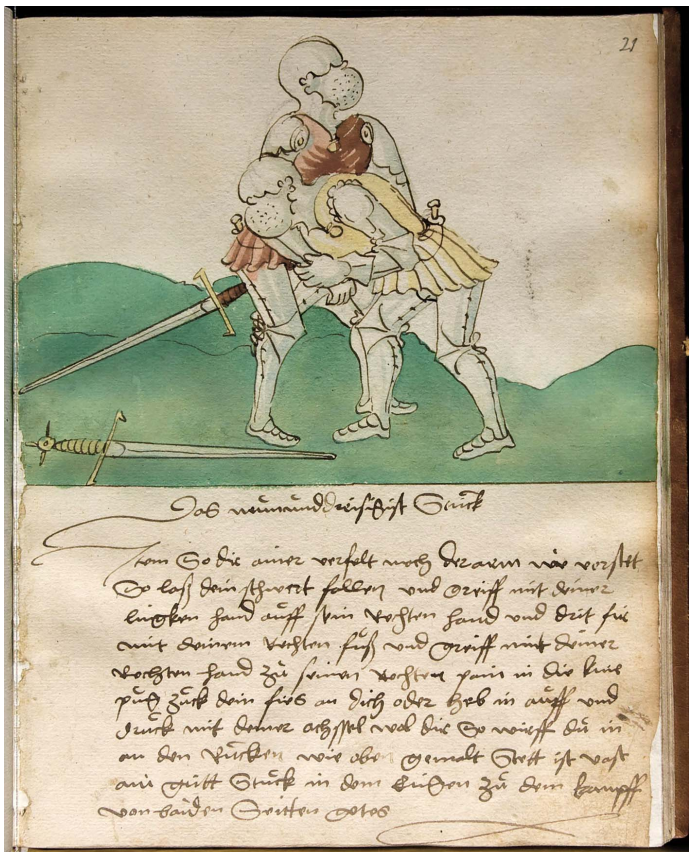 21
Das neünunddreisigist Stuck
Item So dir ainer verfelt noch der arm wie vorstet
So laß dein schwert fallen und greiff mit deiner
lingken hand auff sein Rechten hand und drit für
mit deinem Rechten fuß und greiff mit deiner
Rechten hand zü seinen Rechten pain in die knie
püg zuck dein an dich oder heb in auff und
druck mit deiner achssel wol dir So wirff dü in
an den Rücken wie oben gemalt Stett ist vast
ain gütt Stuck in dem zü dem kampff
von baiden Seitten